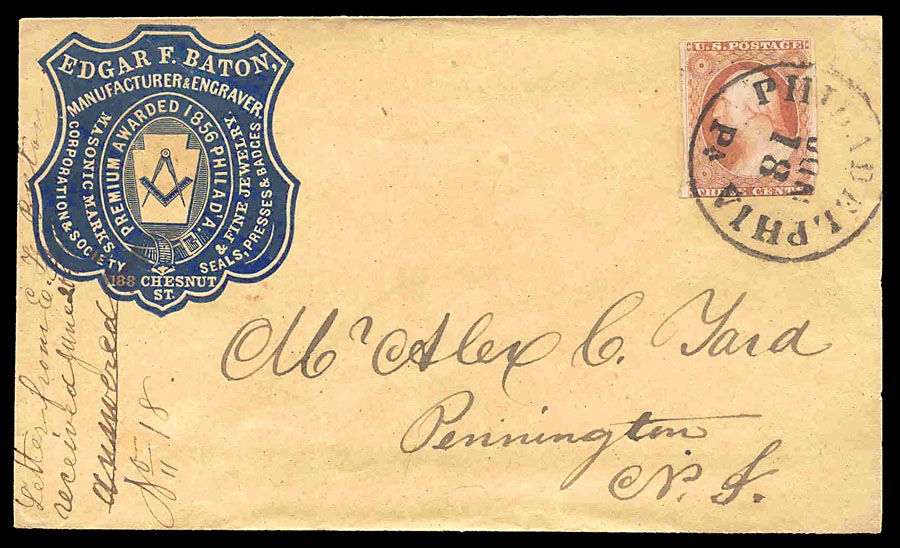 EDGAR F. BATON,
MANUFACTURER & ENGRAVER
PREMIUM AWARDED 1856 PHILAD'A.
MASONIC MARKS,
& FINE JEWELRY.
CORPORATION & SOCIETY
SEALS, PRESSES & BADGES
188 CHESNUT
ST.
U.S. POSTAGE
THREE CENTS
PHILADELPHIA Pa
JUN
18
Mr Alex C. Yard
Pennington
N. J.
Letter from E. F. Baton
received June
answered
No 18